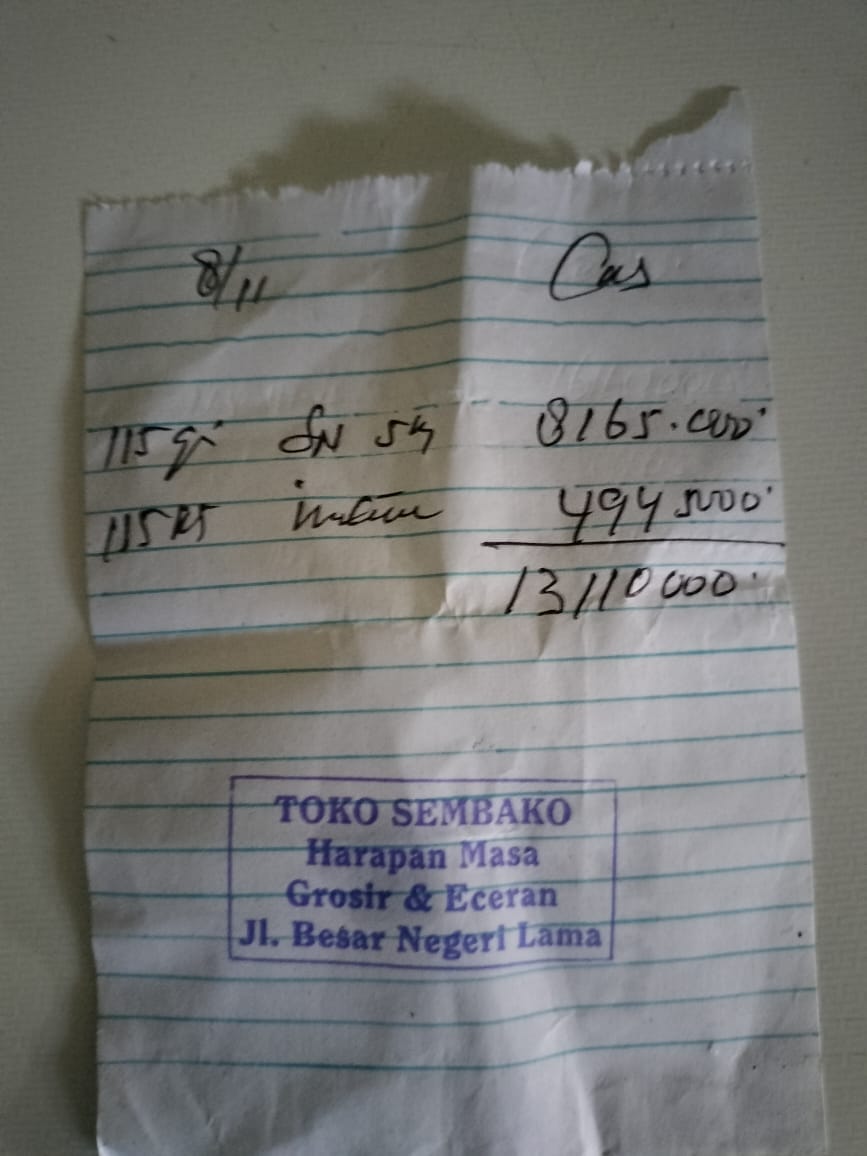 8/11 Cas
115 gi SN 5K 8165.000
115 494 5000
13110000
TOKO SEMBAKO
Harapan Masa
Grosir & Eceran
Jl. Besar Negeri Lama